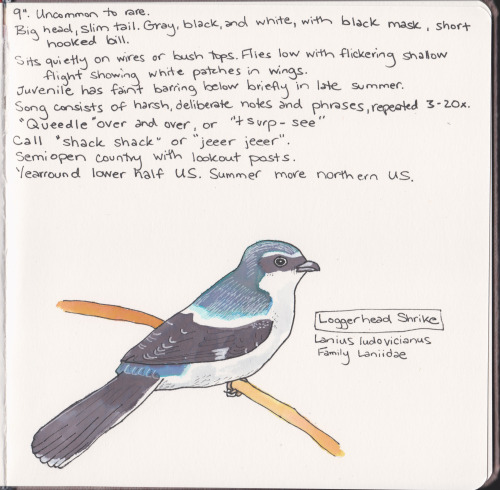 9". Uncommon to rare.
Big head, slim tail. Gray, black, and white, with black mask, short
hooked bill.
Sits quietly on wires or bush tops. Flies low with flickering shallow
flight showing white patches in wings.
Juvenile has faint barring below briefly in late summer.
Song consists of harsh, deliberate notes and phrases, repeated 3-20x.
"Queedle" over and over, or "tsurp-see"
Call "shack shack" or "jeeer jeeer".
Semiopen country with lookout posts.
Yearround lower half US. Summer more northern US.
Loggerhead Shrike
Lanius ludovicianus
Family Laniidae